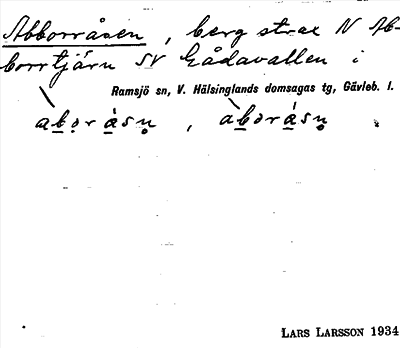 Abborråsen, berg strax N Ab-
borrtjärn SV Gådavallen i
Ramsjö sn, V. Hälsinglands domsagas tg, Gävleb. l.
àborásn, àborásn.
LARS LARSSON 1934